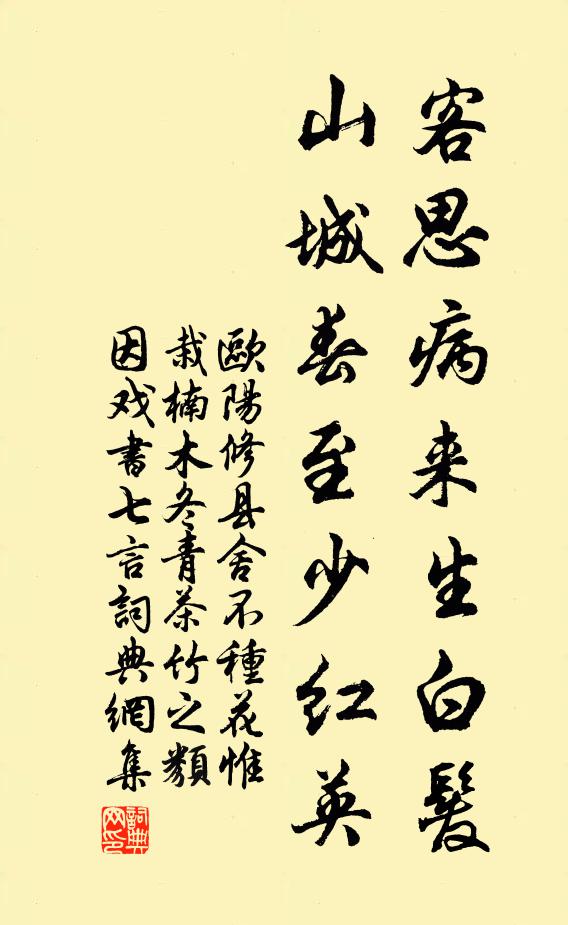 客思病来生白髮
山城春至少红英
歐陽修县舍不種花惟
栽楠木冬青茶竹之類
因戏書七言詞典網集
詞典网印